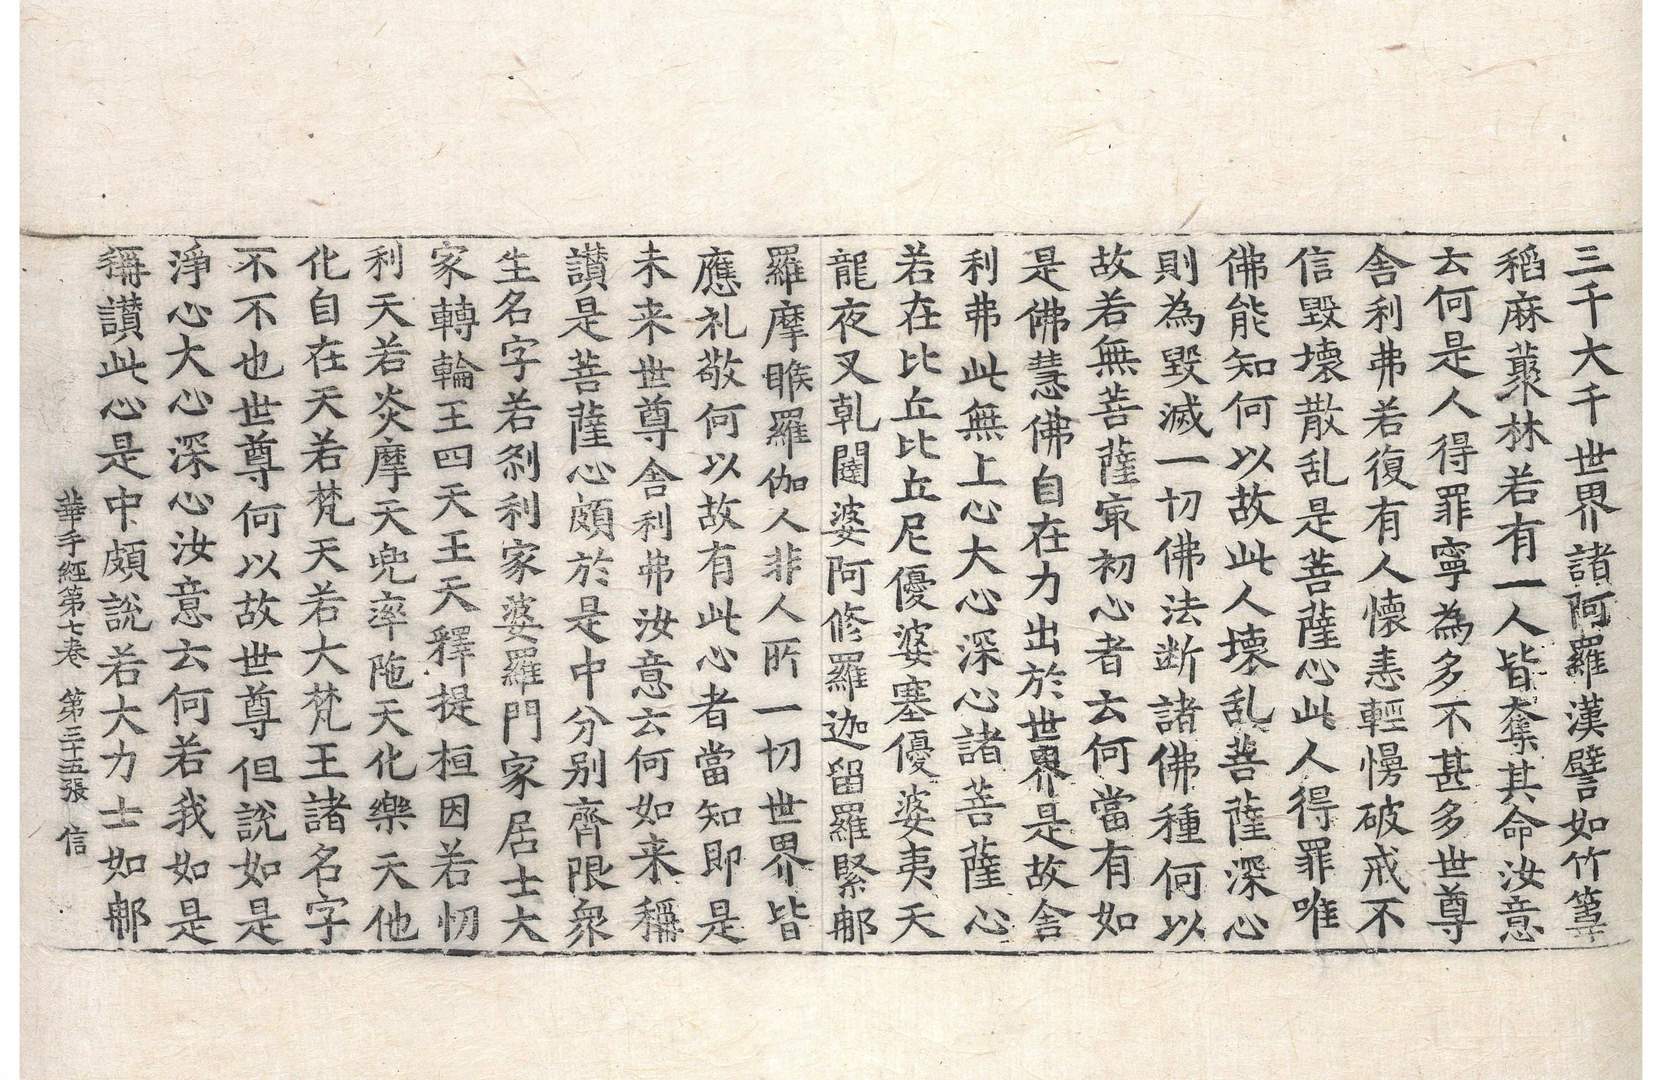 三千大千世界諸阿羅漢譬如竹䓘
稻麻藂林若有一人皆奪其命汝意
云何是人得罪寧為多不甚多世尊
舍利弗若復有人懷恚輕慢破戒不
信毀壞散乱是菩薩心此人得罪唯
佛能知何以故此人壞乱菩薩深心
則為毀滅一切佛法断諸佛種何以
故若無菩薩冣初心者云何當有如
是佛慧佛自在力出於世界是故舍
利弗此無上心大心深心諸菩薩心
若在比丘比丘尼優婆塞優婆夷天
龍夜叉乹闥婆阿修羅迦留羅緊那
羅摩睺羅伽人非人所一切世界皆
應礼敬何以故有此心者當知即是
未来世尊舍利弗汝意云何如来稱
讃是菩薩心頗於是中分別齊限衆
生名字若刹利家婆羅門家居士大
家轉輪王四天王天釋提桓因若忉
利天若炎摩天兜率陁天化樂天他
化自在天若梵天若大梵王諸名字
不不也世尊何以故世尊但說如是
淨心大心深心汝意云何若我如是
稱讃此心是中頗說若大力士如那
華手經第七卷 第三十五張 信